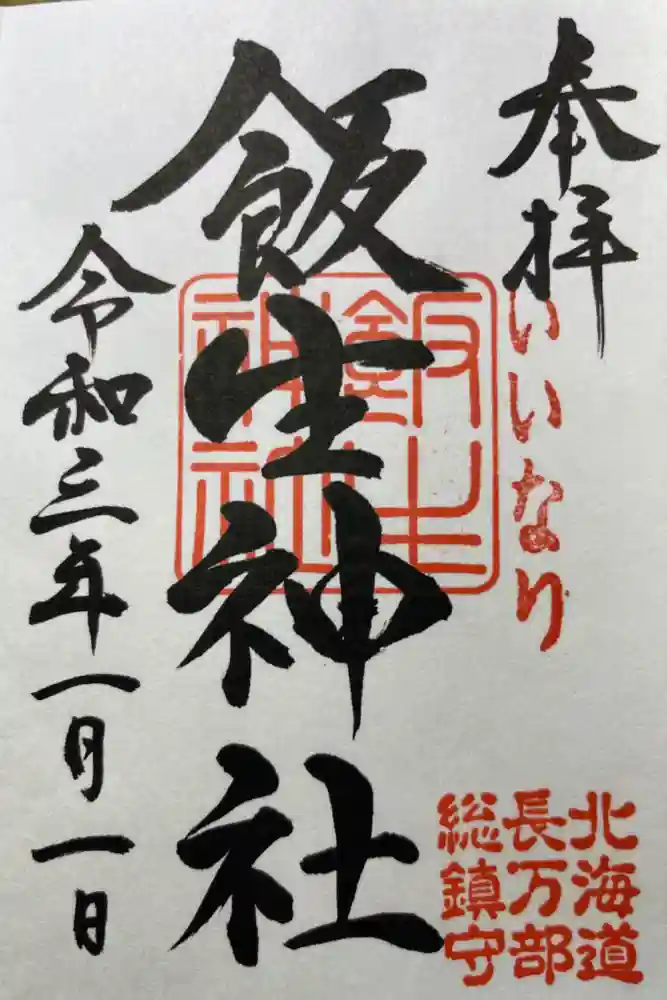 奉拝
いいなり
飯生神社
飯生神社
令和三年一月一日
北海道
長万部
総鎮守